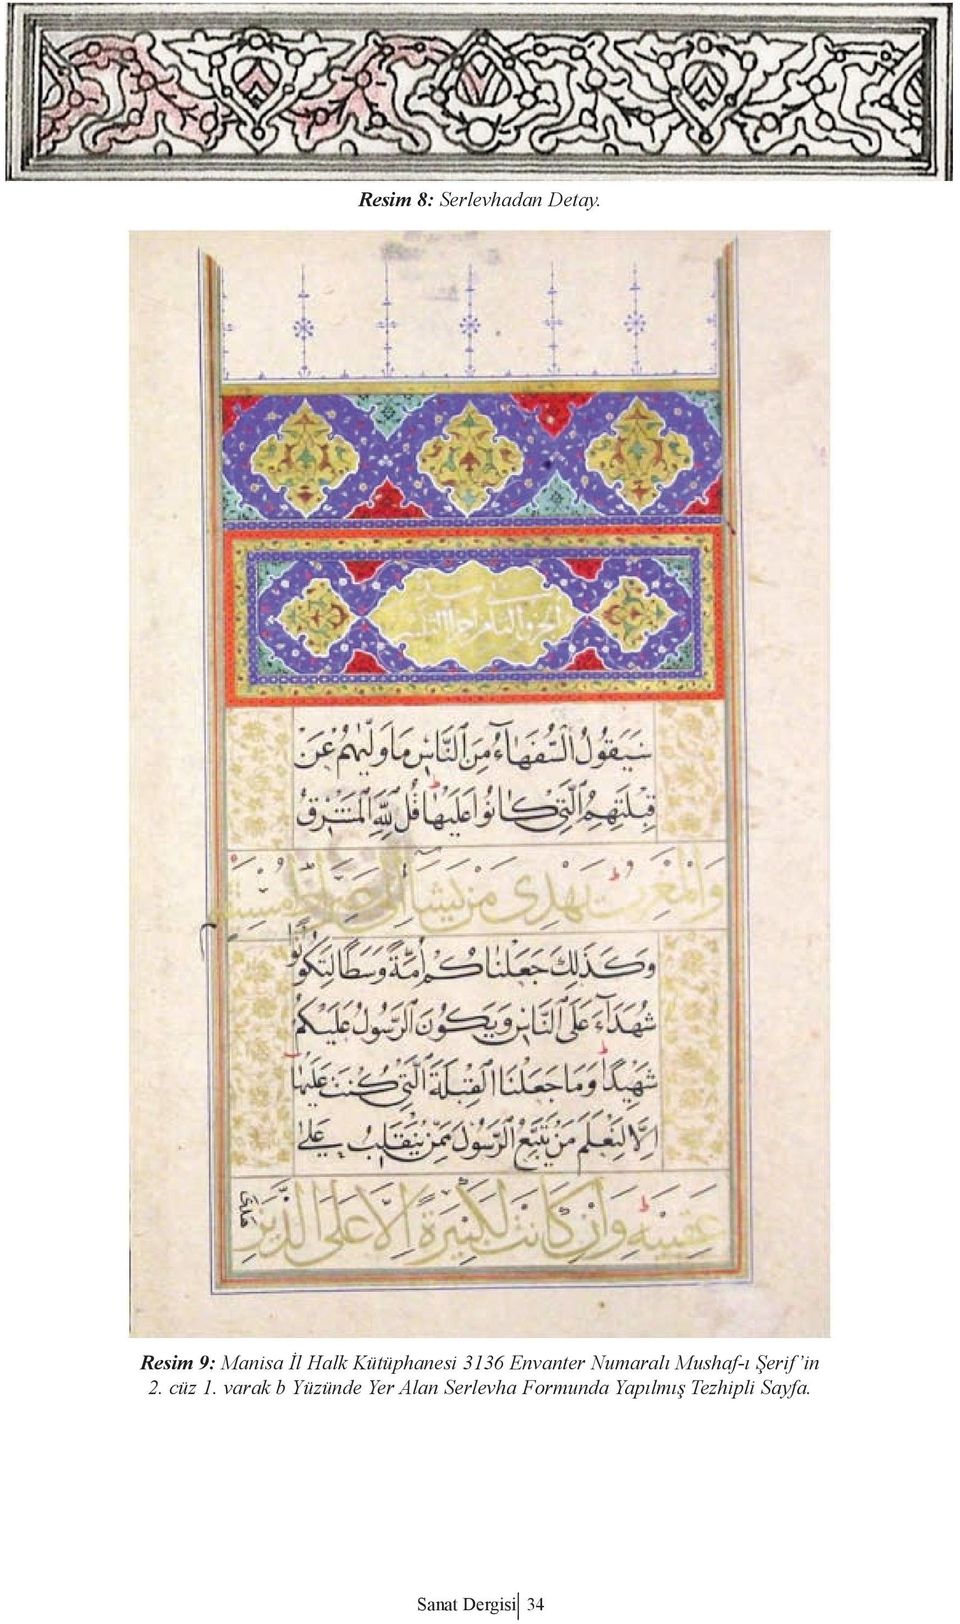 Resim 8: Serlevhadan Detay.
سَيَقُولُ السُّفَهَاءُ مِنَ النَّاسِ مَا وَلّٰيهُمْ عَنْ
قِبْلَتِهِمُ الَّتِي كَانُوا عَلَيْهَا قُلْ لِلّٰهِ الْمَشْرِقُ
وَالْمَغْرِبُ يَهْدِي مَنْ يَشَاءُ إِلَى صِرَاطٍ مُسْتَقِيمٍ
وَكَذٰلِكَ جَعَلْنَاكُمْ أُمَّةً وَسَطًا لِتَكُونُوا
شُهَدَاءَ عَلَى النَّاسِ وَيَكُونَ الرَّسُولُ عَلَيْكُمْ
شَهِيدًا وَمَا جَعَلْنَا الْقِبْلَةَ الَّتِي كُنْتَ عَلَيْهَا
إِلَّا لِنَعْلَمَ مَنْ يَتَّبِعُ الرَّسُولَ مِمَّنْ يَنْقَلِبُ عَلَى
عَقِبَيْهِ وَإِنْ كَانَتْ لَكَبِيرَةً إِلَّا عَلَى الَّذِينَ
هَدَى
Resim 9: Manisa İl Halk Kütüphanesi 3136 Envanter Numaralı Mushaf-ı Şerif'in
2. cüz 1. varak b Yüzünde Yer Alan Serlevha Formunda Yapılmış Tezhipli Sayfa.
Sanat Dergisi 34